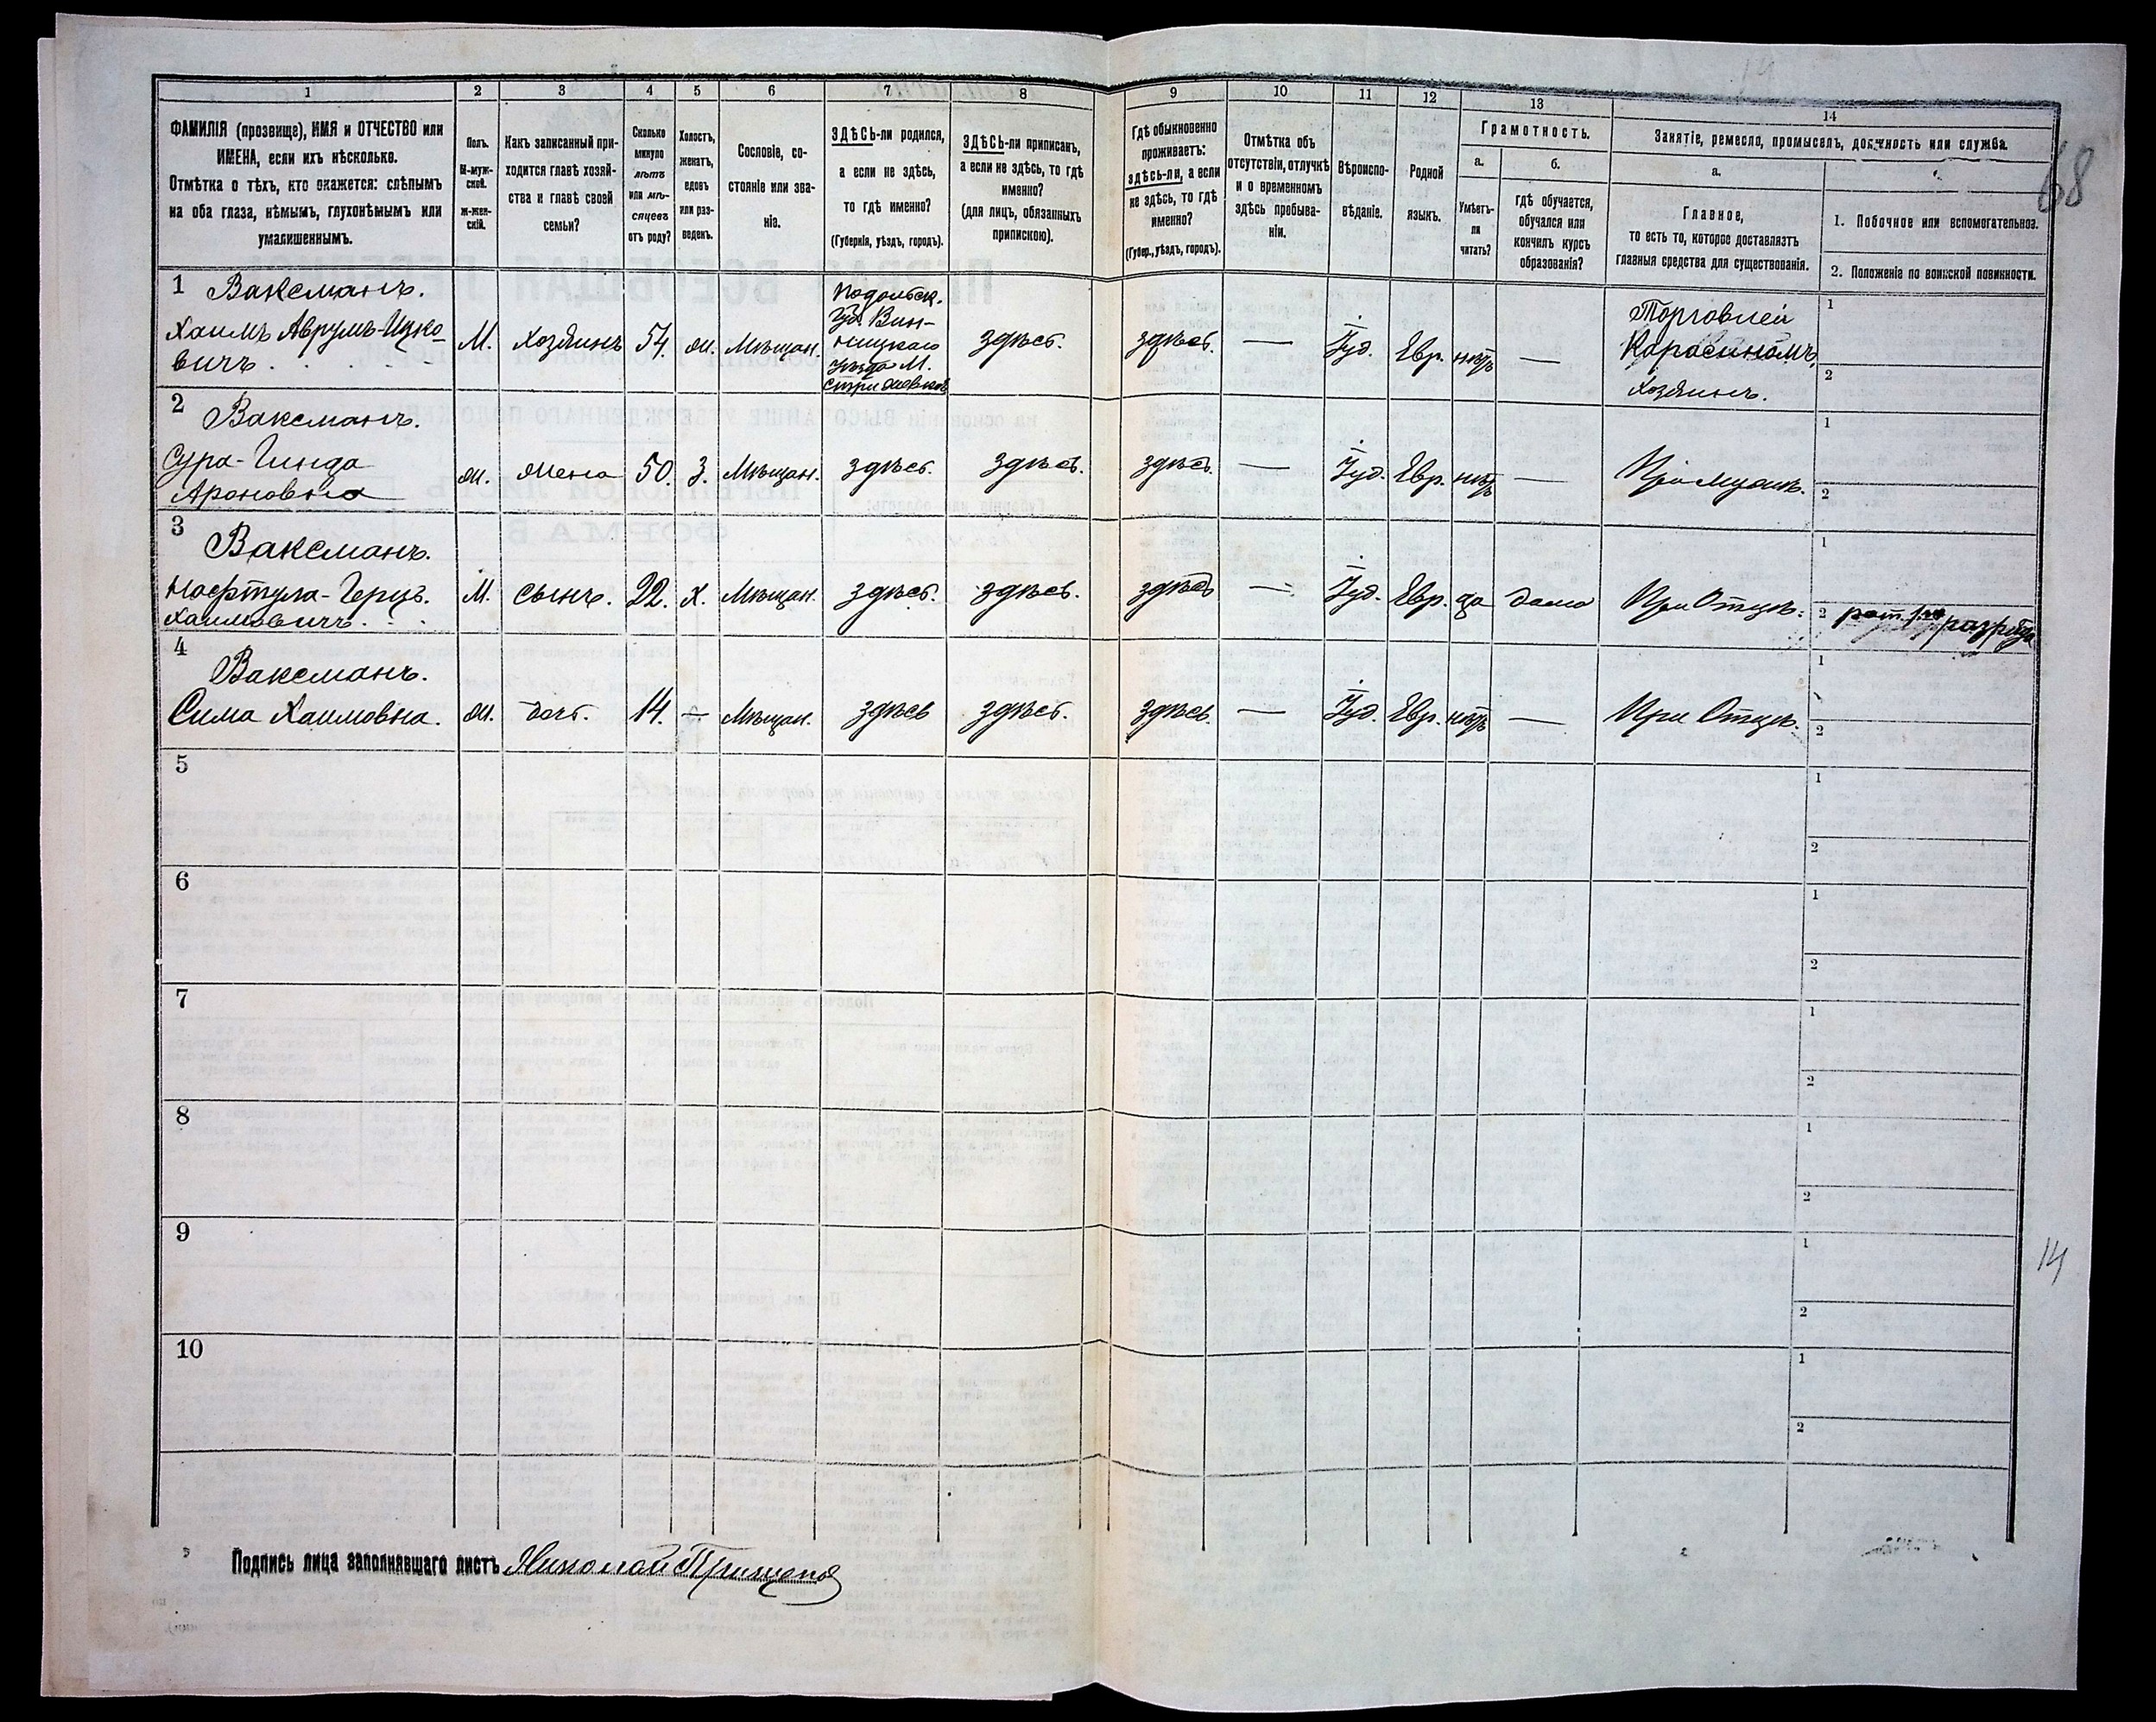 1 2 3 4 5 6 7 8 9 10 11 12 13 14
ФАМИЛІЯ (прозвище), ИМЯ и ОТЧЕСТВО или
ИМЕНА, если ихъ нѣсколько.
Отмѣтка о тѣхъ, кто окажется: слѣпымъ
на оба глаза, нѣмымъ, глухонѣмымъ или
умалишеннымъ.
Полъ.
М-муж-
ской.
ж-жен-
скій.
Какъ записанный при-
ходится главѣ хозяй-
ства и главѣ своей
семьи?
Сколько
минуло
лѣтъ
или мѣ-
сяцевъ
отъ роду?
Холостъ,
женатъ,
вдовъ
или раз-
веденъ.
Сословіе, со-
стояніе или зва-
ніе.
ЗДѢСЬ-ли родился,
а если не здѣсь,
то гдѣ именно?
(Губернія, уѣздъ, городъ).
ЗДѢСЬ-ли приписанъ,
а если не здѣсь, то гдѣ
именно?
(для лицъ, обязанныхъ
припискою).
Гдѣ обыкновенно
проживаетъ:
здѣсь-ли, а если
не здѣсь, то гдѣ
именно?
(Губер., уѣздъ, городъ).
Отмѣтка объ
отсутствіи, отлучкѣ
и о временномъ
здѣсь пребыва-
ніи.
Вѣроиспо-
вѣданіе.
Родной
языкъ.
Грамотность.
а.
Умѣетъ-
ли
читать?
б.
гдѣ обучается,
обучался или
кончилъ курсъ
образованія?
Занятіе, ремесло, промыселъ, должность или служба.
а.
Главное,
то есть то, которое доставляетъ
главныя средства для существованія.
1. Побочное или вспомогательное.
2. Положеніе по воинской повинности.
68
1 Ваксманъ.
Хаимъ Аврумъ-Ицко-
вичъ.
М. Хозяинъ 54. ж. Мѣщан.
Подольск.
Губ. Вин-
ницкаго
уѣзда М.
Стрижевка
здѣсь. здѣсь. — Іуд. Евр. нѣтъ —
Торговлей
Карасиномъ,
Хозяинъ.
1
2
2 Ваксманъ.
Сура-Гинда
Ароновна
ж. жена 50. З. Мѣщан. здѣсь. здѣсь. здѣсь. — Іуд. Евр. нѣтъ — При мужѣ.
1
2
3 Ваксманъ.
Нафтула-Герцъ.
Хаимовичъ.
М. сынъ. 22. Х. Мѣщан. здѣсь. здѣсь. здѣсь — Іуд. Евр. да дома При Отцѣ.
1
2 рат. 1го разряда
4 Ваксманъ.
Сима Хаимовна. ж. дочь. 14. — Мѣщан. здѣсь здѣсь. здѣсь. — Іуд. Евр. нѣтъ — При Отцѣ.
1
2
5
1
2
6
1
2
7
1
2
8
1
2
9
1
2
14
10
1
2
Подпись лица заполнявшаго листъ Николай